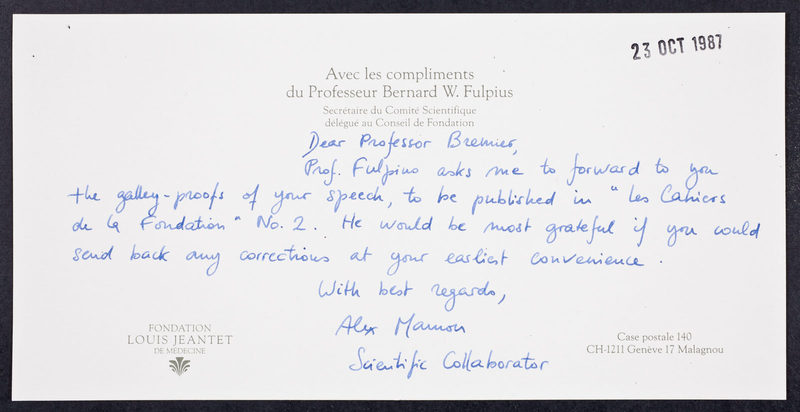 23 OCT 1987
Avec les compliments
du Professeur Bernard W. Fulpius
Secrétaire du Comité Scientifique
délégué au Conseil de Fondation
Dear Professor Brenner,
Prof. Fulpius asks me to forward to you
the galley-proofs of your speech, to be published in "Les Cahiers
de la Fondation" No. 2. He would be most grateful if you could
send back any corrections at your earliest convenience.
With best regards,
Alex
Scientific Collaborator
FONDATION
LOUIS JEANTET
DE MÉDECINE
Case postale 140
CH-1211 Genève 17 Malagnou